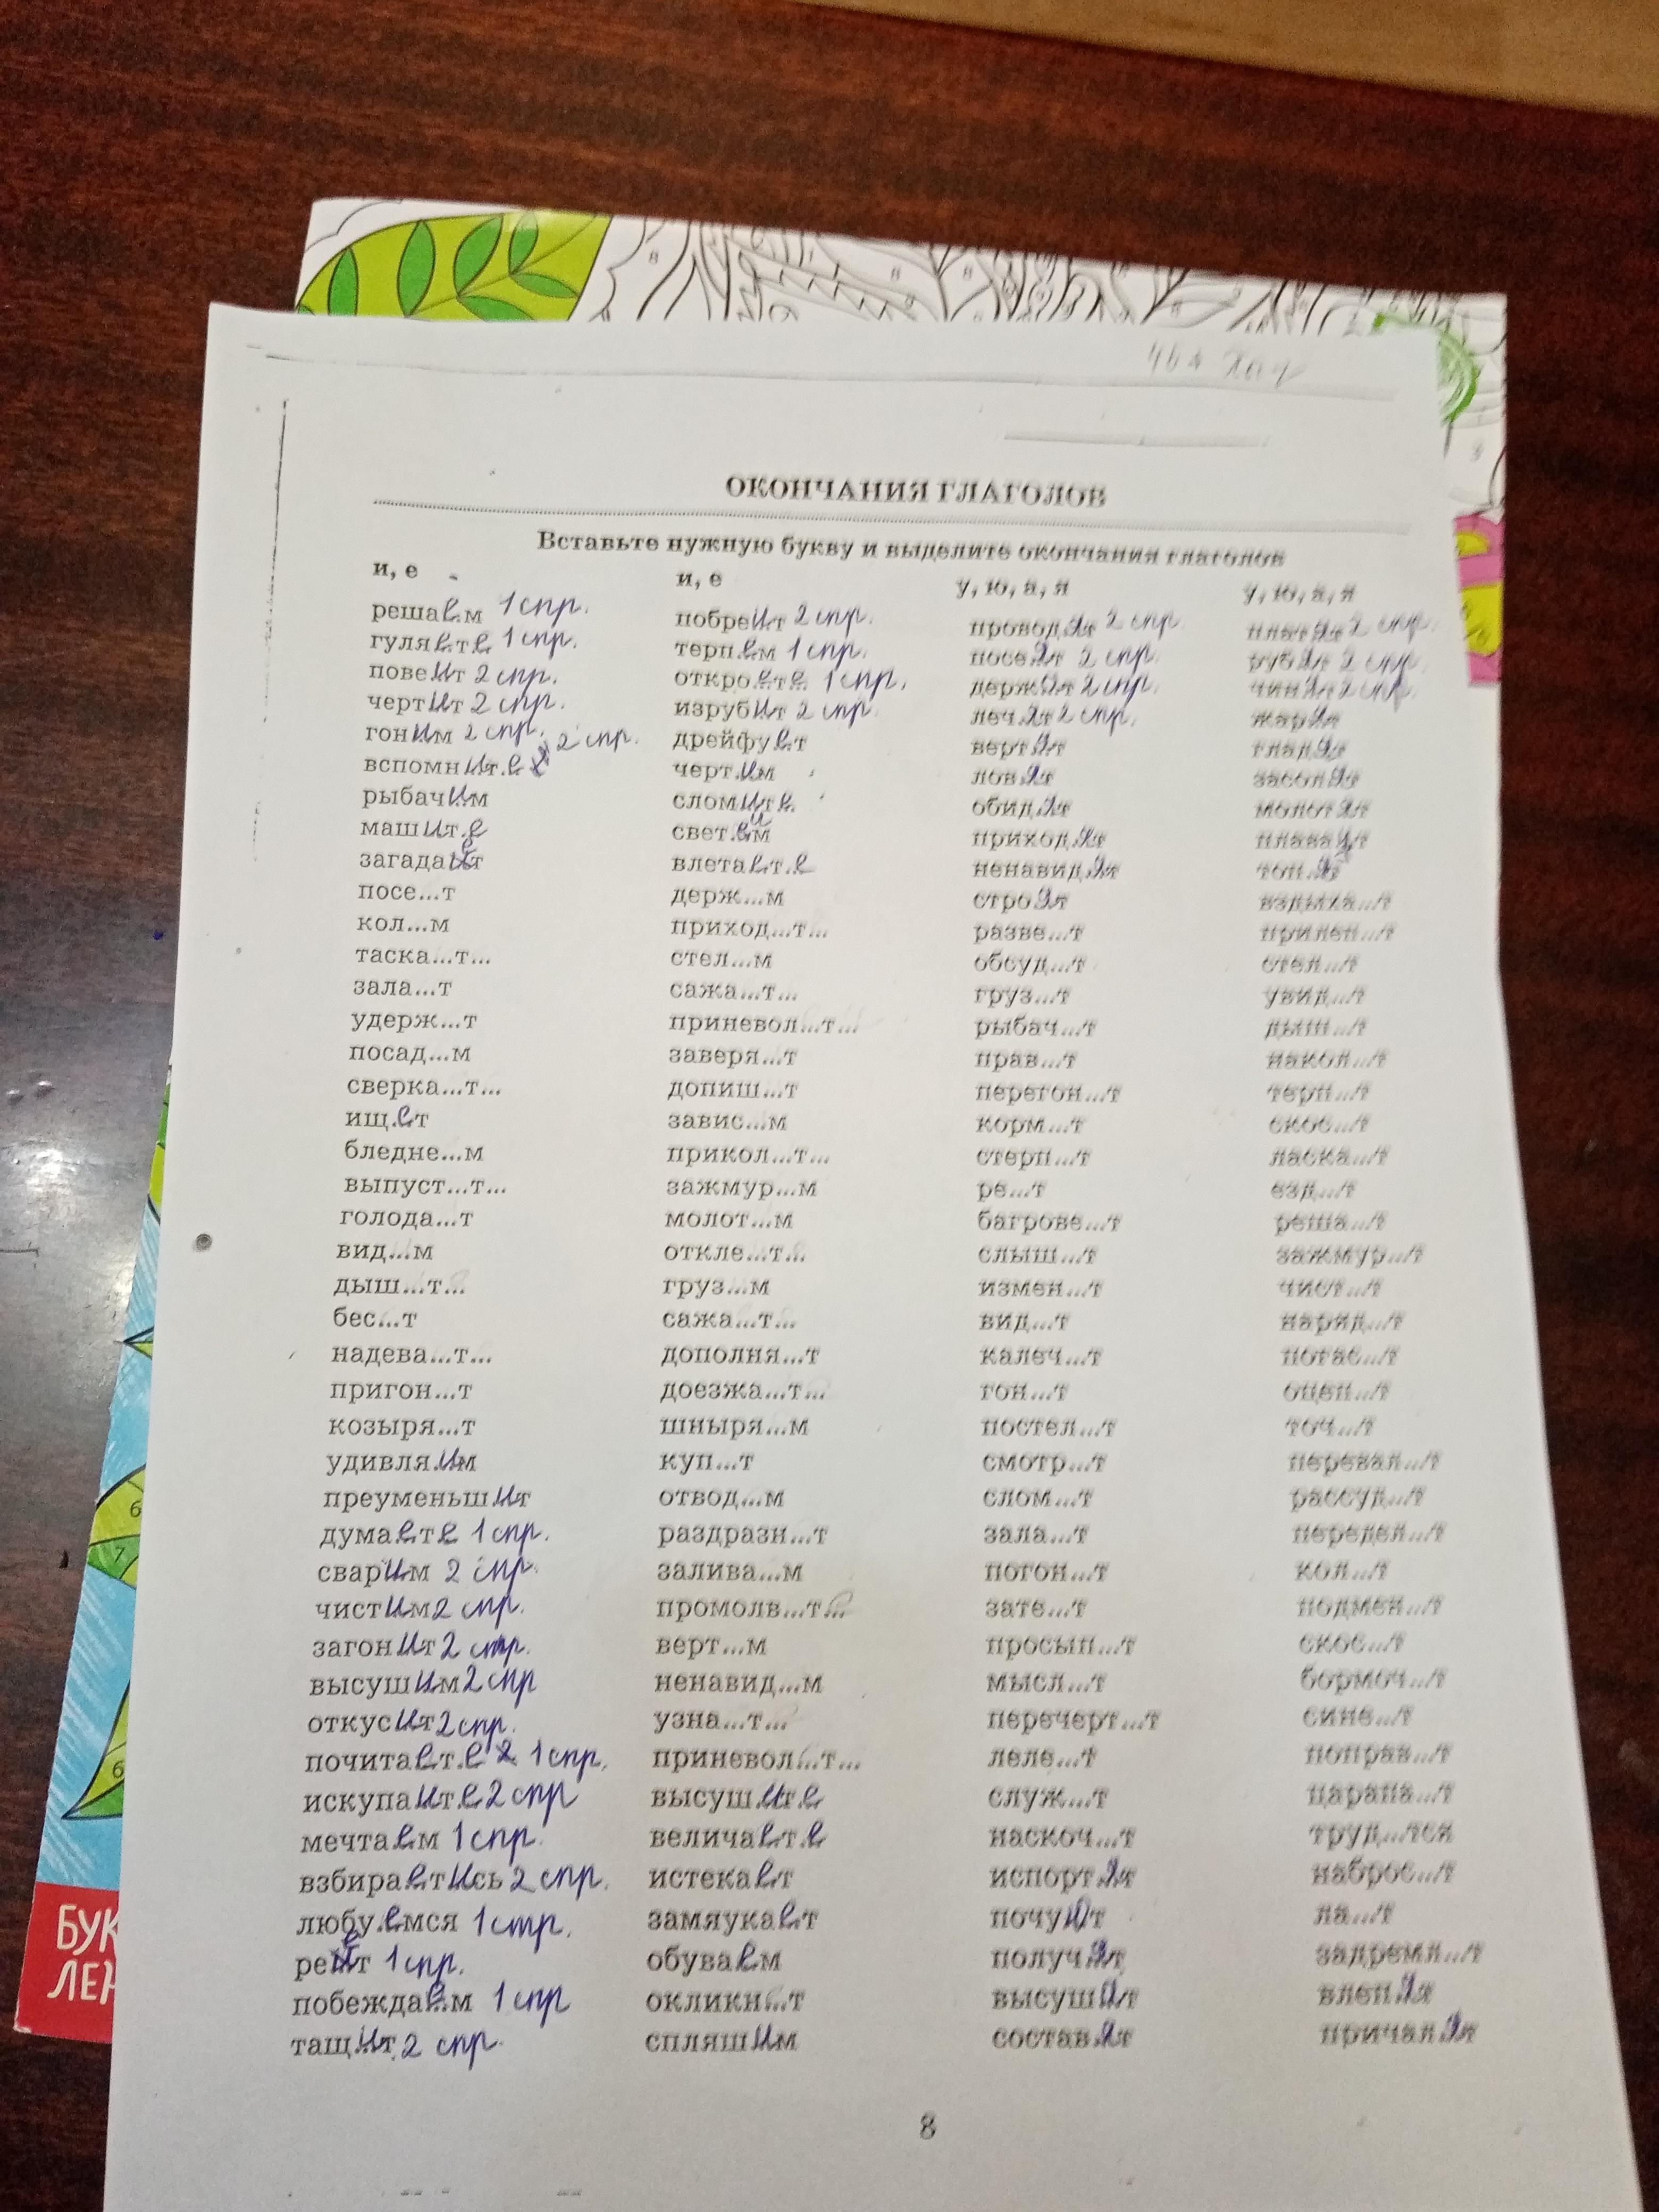 ОКОНЧАНИЯ ГЛАГОЛОВ
Вставьте нужную букву и выделите окончания глаголов
и, е и, е у, ю, а, я у, ю, а, я
решае.м 1 спр. побреит 2 спр. проводят 2 спр. платят 2 спр.
гуляете 1 спр. терп.ем 1 спр. посеят 2 спр. рубят 2 спр.
повеит 2 спр. откроете 1 спр. держат 2 спр. чинят 2 спр.
чертит 2 спр. изрубит 2 спр. лечат 2 спр. жарят
гоним 2 спр. дрейфует вертят гладят
вспомните 2 спр. черт.им ловят засолят
рыбачим сломите обидят молотят
машите свет.им приходят плавают
загадает влетаете ненавидят топ.ят
посе...т держ...м строят вздыха...т
кол...м приход...т... разве...т прилеп...т
таска...т... стел...м обсуд...т стел...т
зала...т сажа...т... груз...т увид...т
удерж...т приневол...т... рыбач...т дыш...т
посад...м заверя...т прав...т накол...т
сверка...т... допиш...т перегон...т терп...т
ищ.ет завис...м корм...т скос...т
бледне...м прикол...т... стерп...т ласка...т
выпуст...т... зажмур...м ре...т езд...т
голода...т молот...м багрове...т реша...т
вид...м откле...т... слыш...т зажмур...т
дыш...т... груз...м измен...т чист...т
бес...т сажа...т... вид...т наряд...т
надева...т... дополня...т калеч...т погас...т
пригон...т доезжа...т... гон...т оцен...т
козыря...т шныря...м постел...т точ...т
удивля.им куп...т смотр...т перевал...т
преуменьшит отвод...м слом...т рассуд...т
думаете 1 спр. раздразн...т зала...т передел...т
сварим 2 спр. залива...м погон...т кол...т
чистим 2 спр. промолв...т... зате...т подмен...т
загонит 2 спр. верт...м просып...т скос...т
высушим 2 спр ненавид...м мысл...т бормоч...т
откусит 2 спр. узна...т... перечерт...т сине...т
почитает.е 1 спр. приневол...т... леле...т поправ...т
искупаит.е 2 спр высушите служ...т царапа...т
мечтаем 1 спр. величает.е наскоч...т труд...тся
взбираетись 2 спр. истекает испортят наброс...т
любу.емся 1 спр. замяукает почуют ла...т
реет 1 спр. обуваем получат задремл...т
побеждаем 1 спр окликн...т высушит влепят
тащит. 2 спр. спляшим составят причалят
8
БУК
ЛЕН
6
7
6